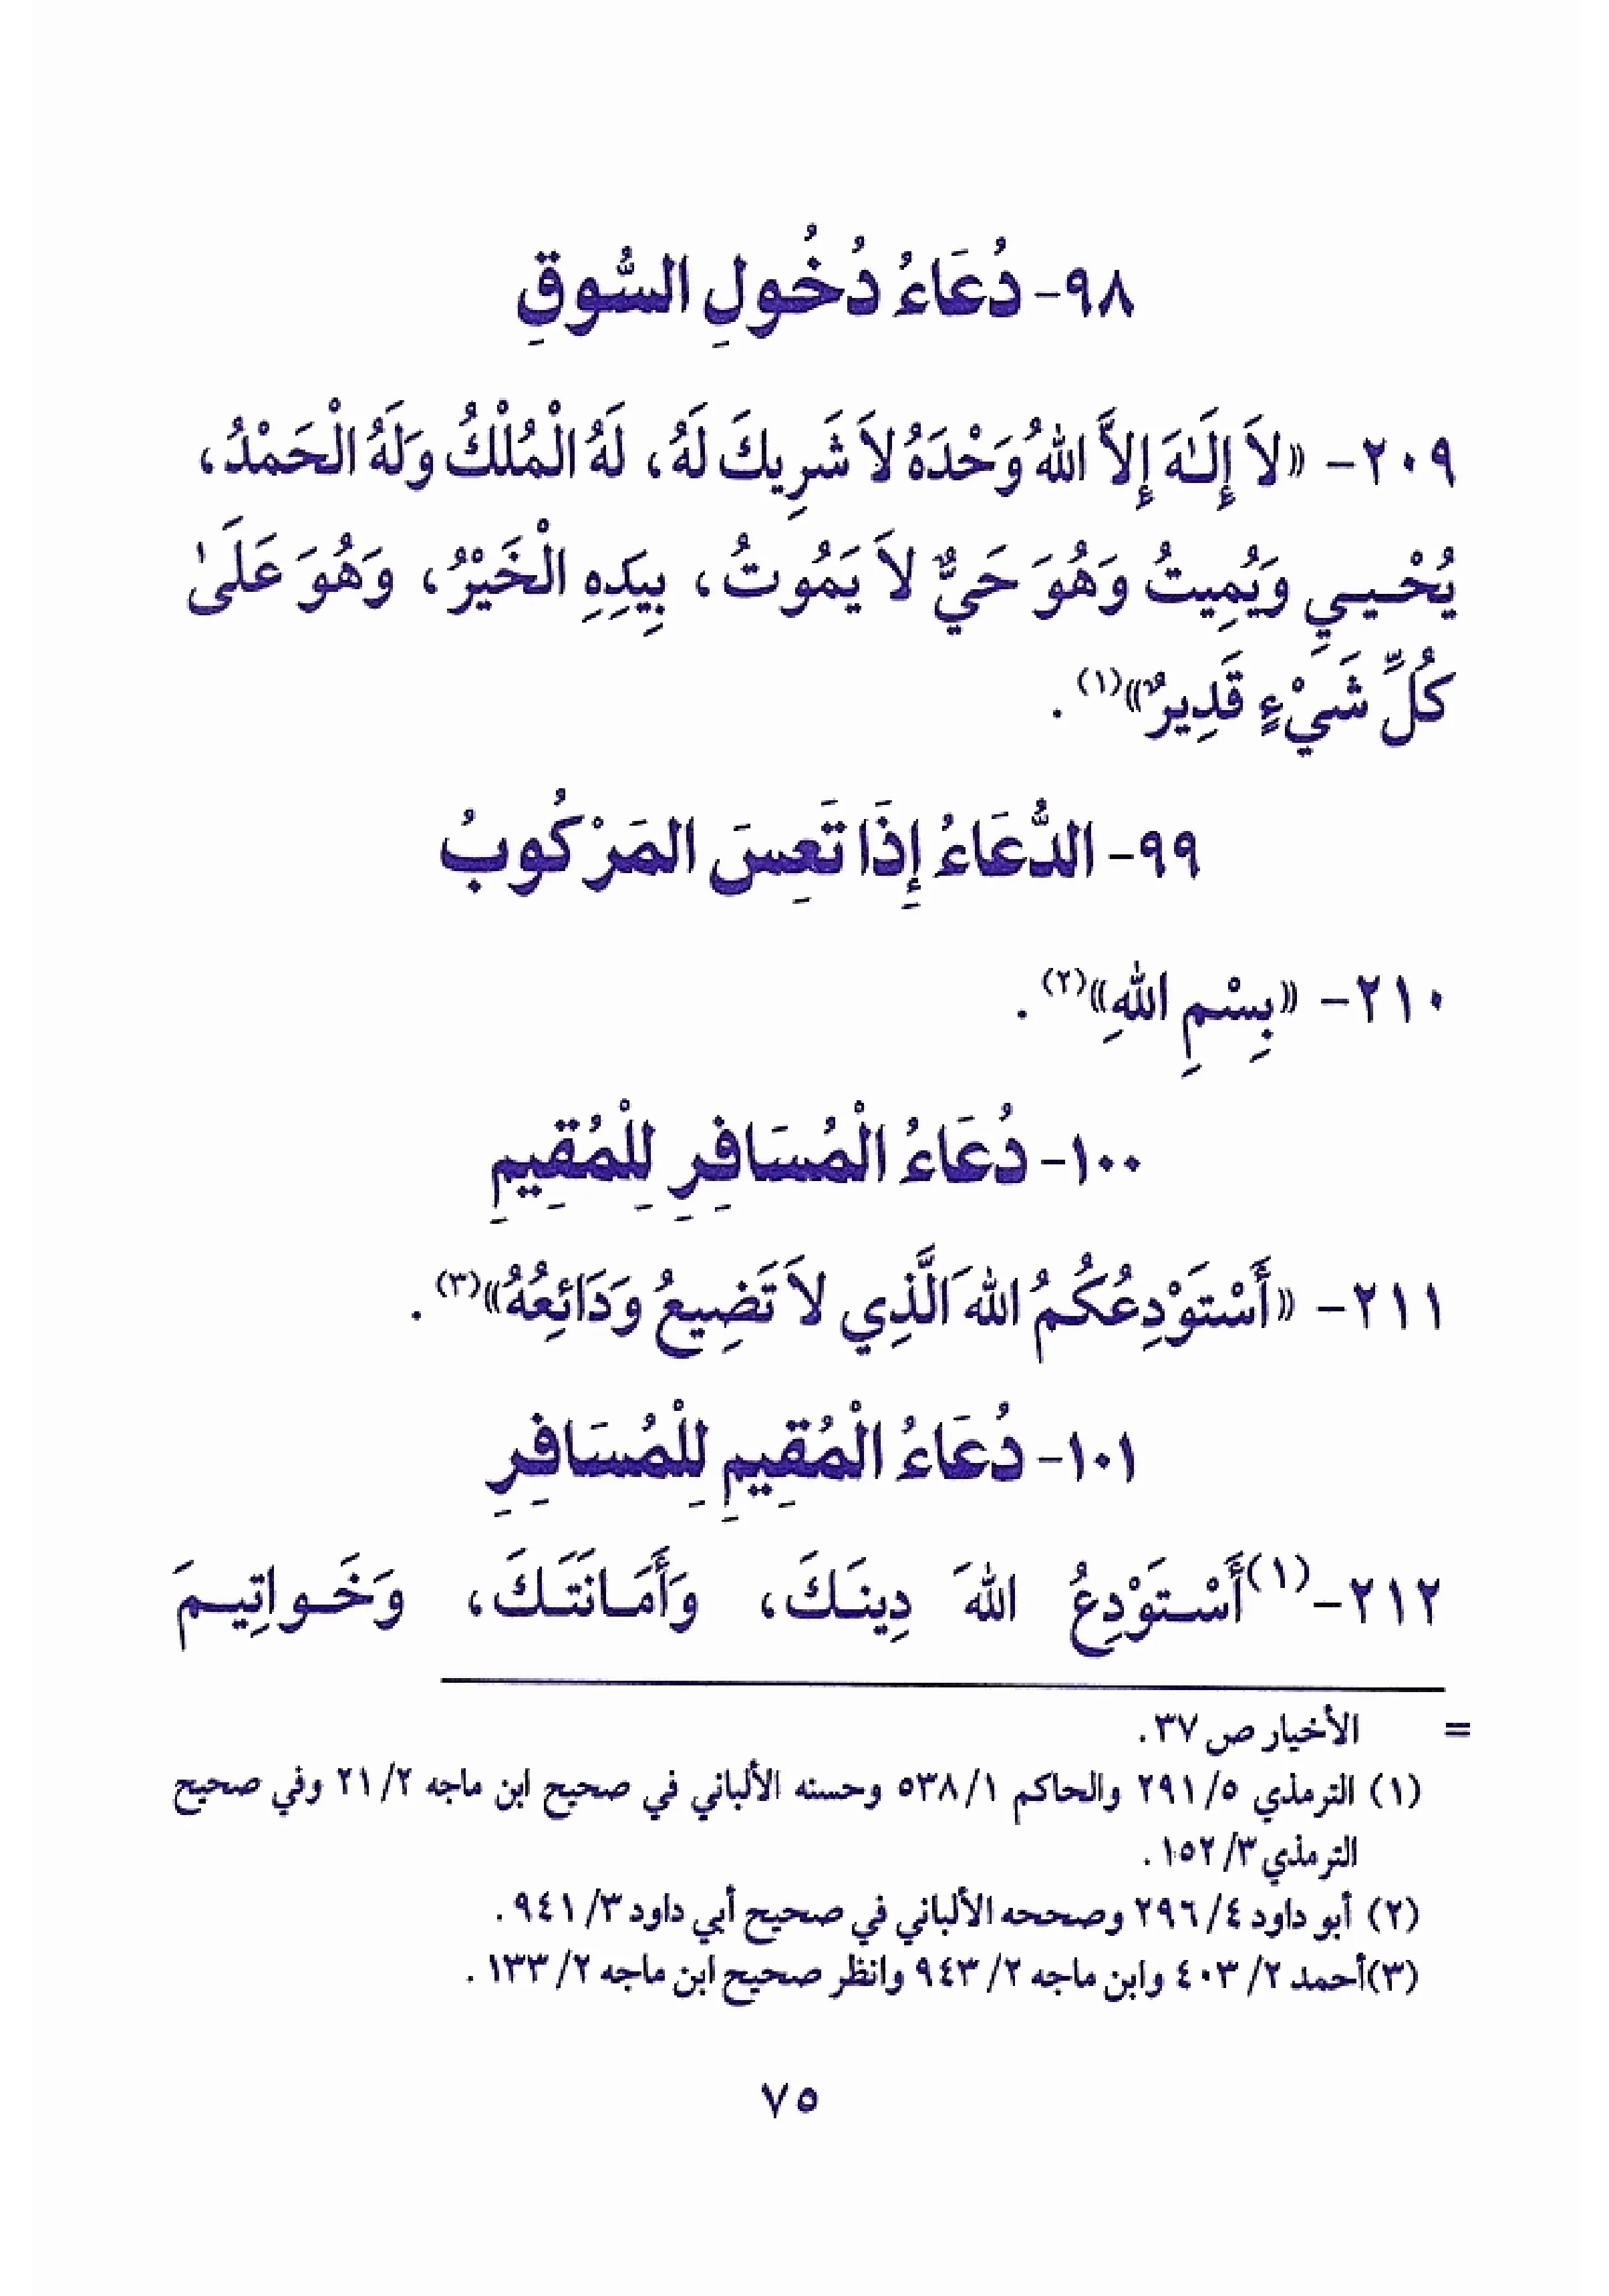 ٩٨- دُعَاءُ دُخُولِ السُّوقِ
٢٠٩- «لاَ إِلَـٰهَ إِلاَّ اللهُ وَحْدَهُ لاَ شَرِيكَ لَهُ، لَهُ الْمُلْكُ وَلَهُ الْحَمْدُ،
يُحْـيـيِ وَيُمِيتُ وَهُوَ حَيٌّ لاَ يَمُوتُ، بِيَدِهِ الْخَيْرُ، وَهُوَ عَلَىٰ
كُلِّ شَيْءٍ قَدِيرٌ»(١).
٩٩- الدُّعَاءُ إِذَا تَعِسَ المَرْكُوبُ
٢١٠- «بِسْمِ اللهِ»(٢).
١٠٠- دُعَاءُ الْمُسَافِرِ لِلْمُقِيمِ
٢١١- «أَسْتَوْدِعُكُمُ اللهَ الَّذِي لاَ تَضِيعُ وَدَائِعُهُ»(٣).
١٠١- دُعَاءُ الْمُقِيمِ لِلْمُسَافِرِ
٢١٢-(١)أَسْـتَوْدِعُ اللهَ دِينَـكَ، وَأَمَـانَتَـكَ، وَخَـواتِيـمَ
= الأخيار ص٣٧.
(١) الترمذي ٥/ ٢٩١ والحاكم ١/ ٥٣٨ وحسنه الألباني في صحيح ابن ماجه ٢/ ٢١ وفي صحيح
الترمذي ٣/ ١٥٢.
(٢) أبو داود ٤/ ٢٩٦ وصححه الألباني في صحيح أبي داود ٣/ ٩٤١.
(٣)أحمد ٢/ ٤٠٣ وابن ماجه ٢/ ٩٤٣ وانظر صحيح ابن ماجه ٢/ ١٣٣.
٧٥